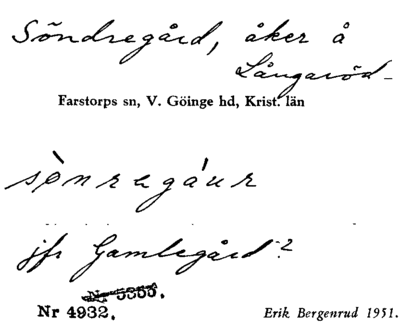 Söndregård, åker å
Långaröd
Farstorps sn, V. Göinge hd, Krist. län
sònregáur
jfr Gamlegård?
Nr 5355.
Nr 4932.
Erik Bergenrud 1951.